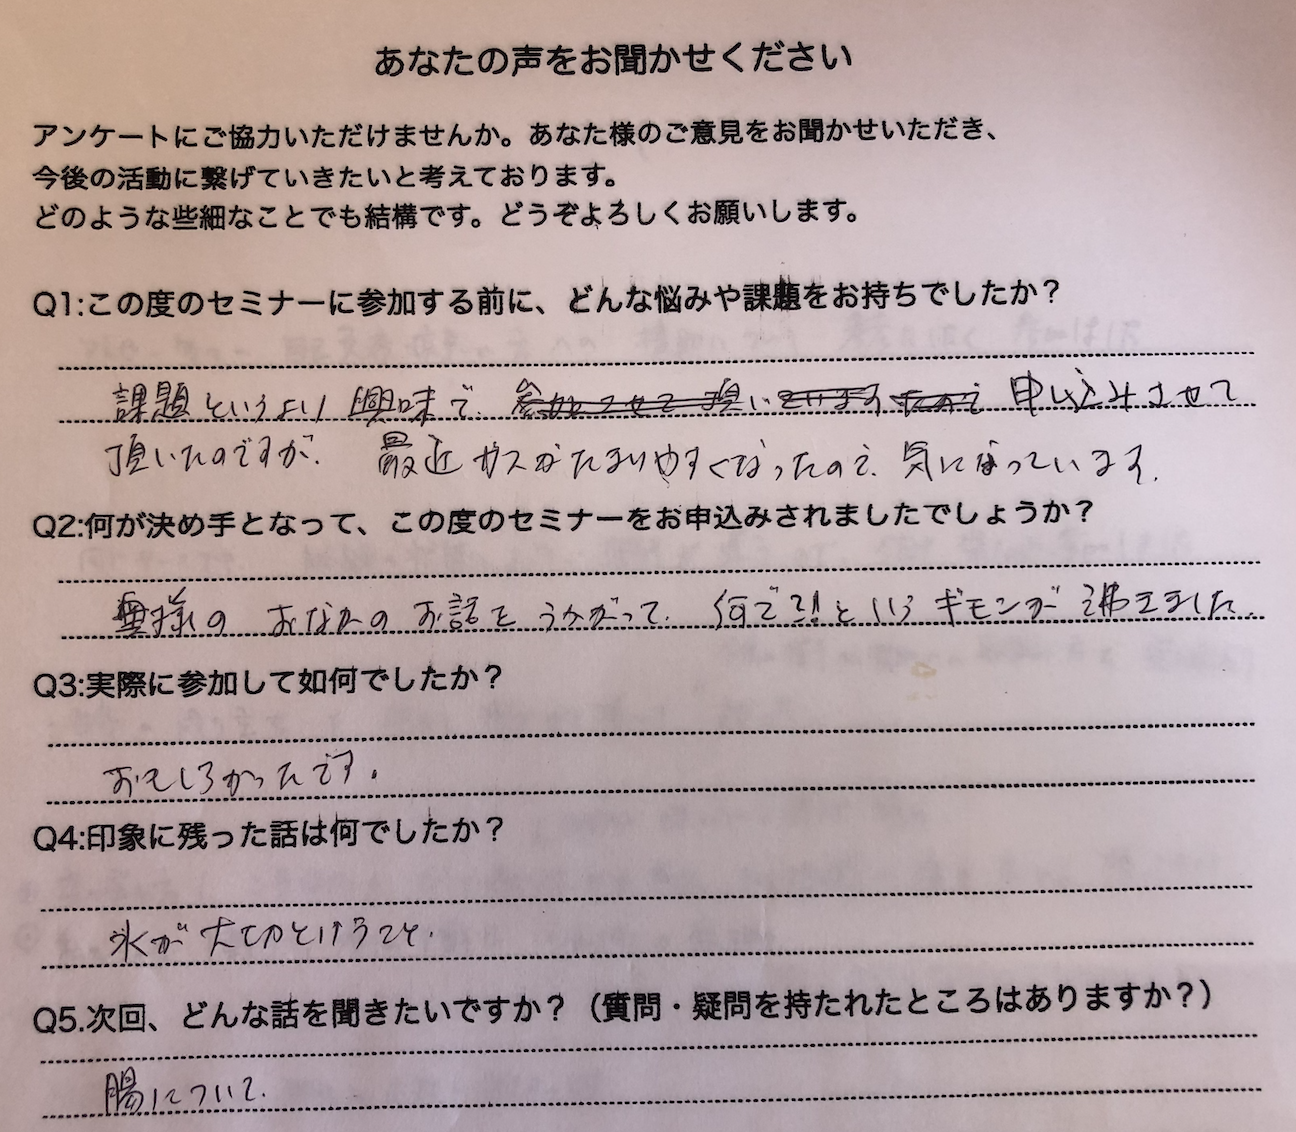 あなたの声をお聞かせください
アンケートにご協力いただけませんか。あなた様のご意見をお聞かせいただき、
今後の活動に繋げていきたいと考えております。
どのような些細なことでも結構です。どうぞよろしくお願いします。
Q1:この度のセミナーに参加する前に、どんな悩みや課題をお持ちでしたか？
課題というより興味で、申し込みさせて
頂いたのですが、最近ガスがたまりやすくなったので、気になっています。
Q2:何が決め手となって、この度のセミナーをお申込みされましたでしょうか？
奥様の おなかの お話を うかがって、何で?!という ギモンが 沸きました。
Q3:実際に参加して如何でしたか？
おもしろかったです。
Q4:印象に残った話は何でしたか？
水が大切ということ。
Q5.次回、どんな話を聞きたいですか？（質問・疑問を持たれたところはありますか？）
腸について。